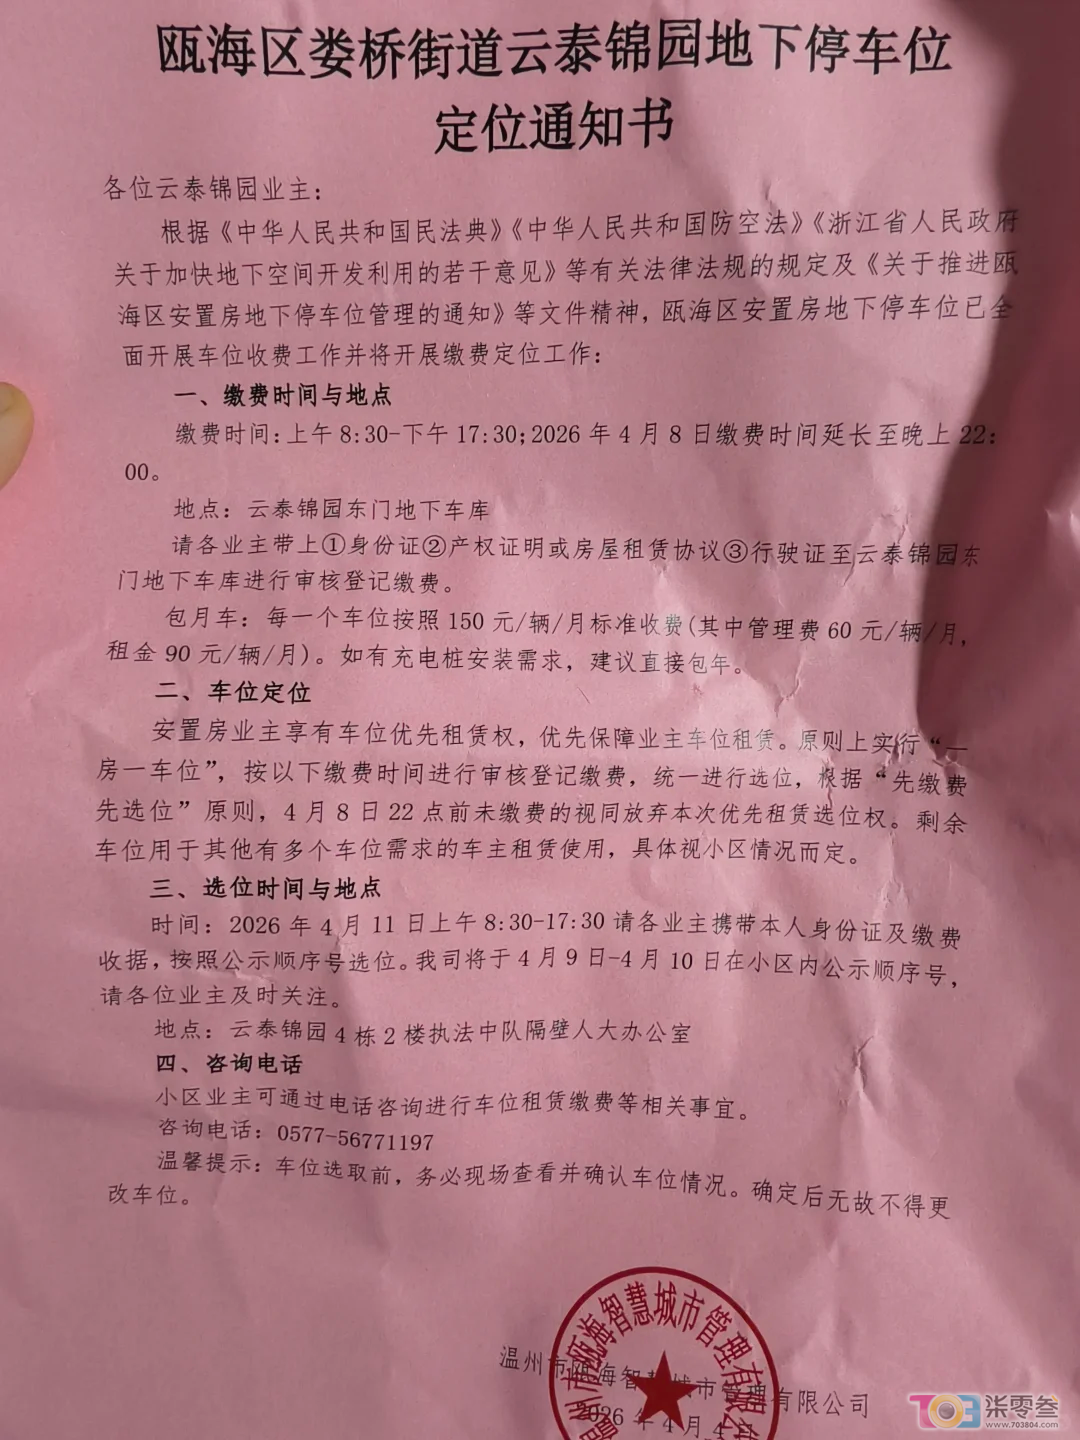 瓯海区娄桥街道云泰锦园地下停车位
定位通知书
各位云泰锦园业主：
根据《中华人民共和国民法典》《中华人民共和国防空法》《浙江省人民政府
关于加快地下空间开发利用的若干意见》等有关法律法规的规定及《关于推进瓯
海区安置房地下停车位管理的通知》等文件精神，瓯海区安置房地下停车位已全
面开展车位收费工作并将开展缴费定位工作：
一、缴费时间与地点
缴费时间：上午8:30-下午17:30；2026年4月8日缴费时间延长至晚上22：
00。
地点：云泰锦园东门地下车库
请各业主带上①身份证②产权证明或房屋租赁协议③行驶证至云泰锦园东
门地下车库进行审核登记缴费。
包月车：每一个车位按照150元/辆/月标准收费(其中管理费60元/辆/月，
租金90元/辆/月)。如有充电桩安装需求，建议直接包年。
二、车位定位
安置房业主享有车位优先租赁权，优先保障业主车位租赁。原则上实行“一
房一车位”，按以下缴费时间进行审核登记缴费，统一进行选位，根据“先缴费
先选位”原则，4月8日22点前未缴费的视同放弃本次优先租赁选位权。剩余
车位用于其他有多个车位需求的车主租赁使用，具体视小区情况而定。
三、选位时间与地点
时间：2026年4月11日上午8:30-17:30请各业主携带本人身份证及缴费
收据，按照公示顺序号选位。我司将于4月9日-4月10日在小区内公示顺序号，
请各位业主及时关注。
地点：云泰锦园4栋2楼执法中队隔壁人大办公室
四、咨询电话
小区业主可通过电话咨询进行车位租赁缴费等相关事宜。
咨询电话：0577-56771197
温馨提示：车位选取前，务必现场查看并确认车位情况。确定后无故不得更
改车位。
温州市瓯海智慧城市管理有限公司
2026年4月4
温州市瓯海智慧城市管理有限公
703 柒零叁
www.703804.com